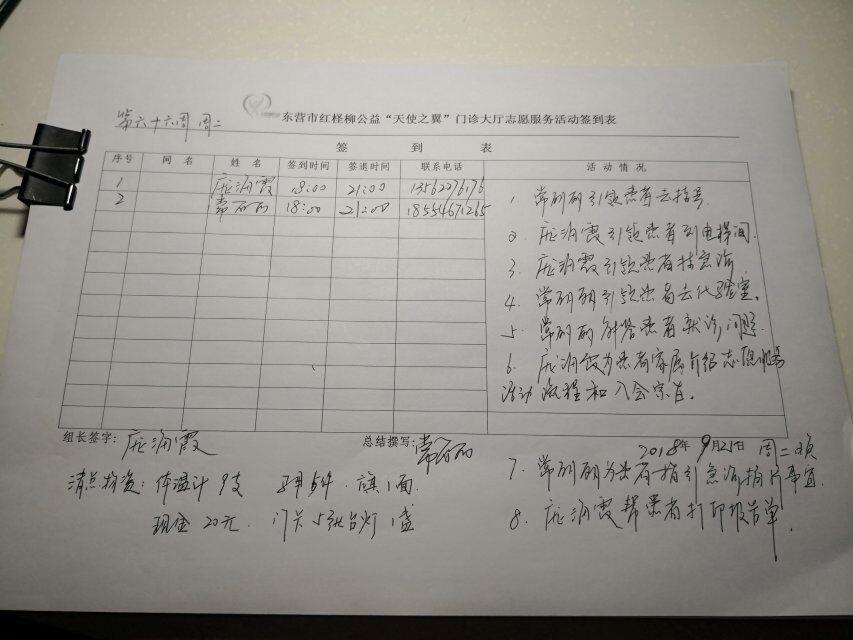 第六十六周 周二
东营市红柽柳公益“天使之翼”门诊大厅志愿服务活动签到表
签 到 表
序号 网名 姓名 签到时间 签退时间 联系电话 活动情况
1 庞海霞 18:00 21:00 13562276176
2 常丽丽 18:00 21:00 18554671265
1. 常丽丽引领患者去挂号.
2. 庞海霞引领患者到电梯间.
3. 庞海霞引领患者挂急诊.
4. 常丽丽引领患者去化验室.
5. 常丽丽解答患者就诊问题.
6. 庞海霞为患者家属介绍志愿服务
活动流程和入会宗旨.
组长签字: 庞海霞 总结撰写: 常丽丽 2018年9月21日 周二
7. 常丽丽为患者指引急诊拍片事宜.
8. 庞海霞帮患者打印报告单.
清点物资: 体温计9支 5件 旗1面
现金20元. 门卡5张台灯1盏